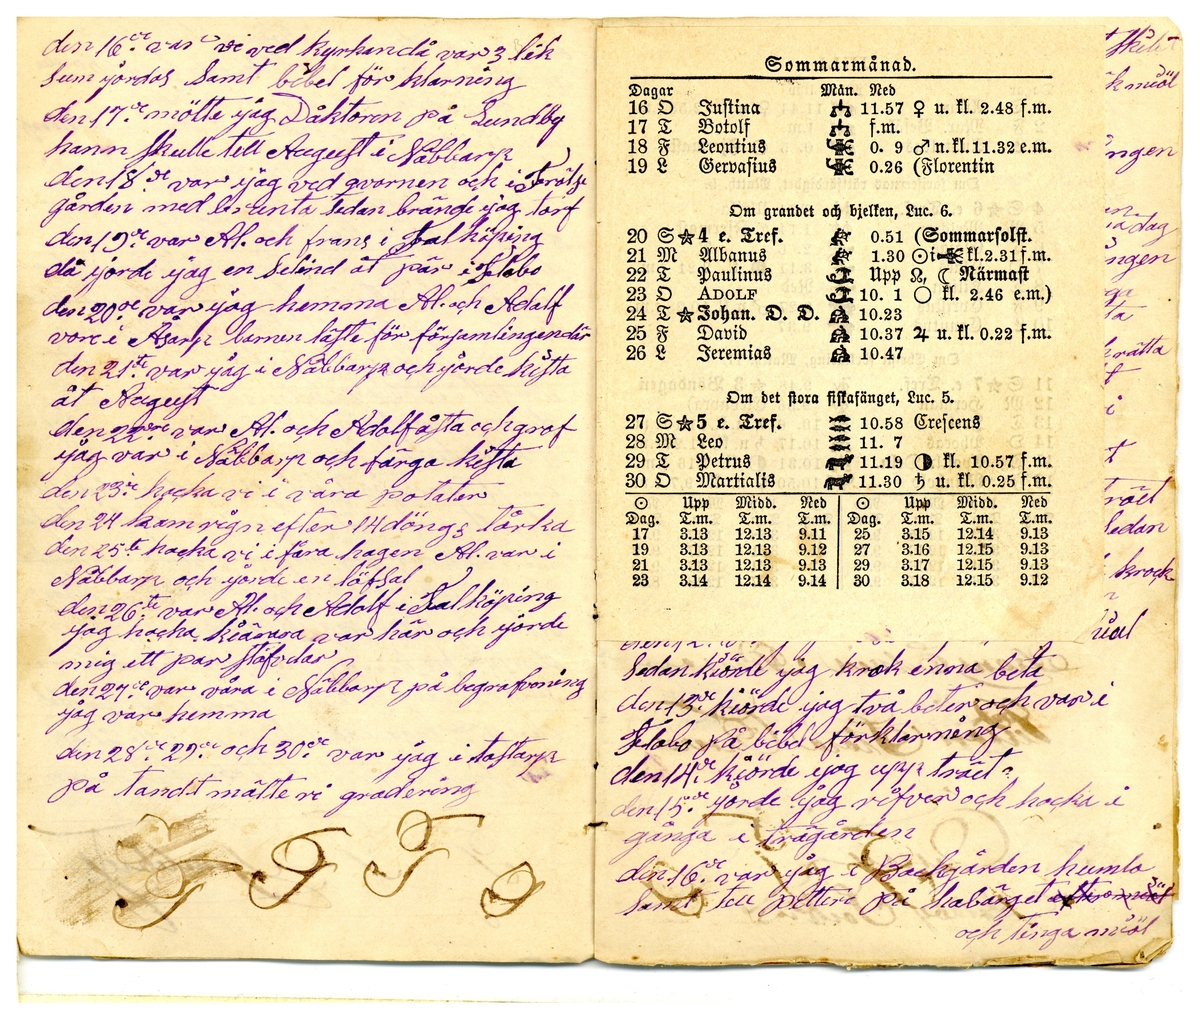 den 16de var vi ved kyrkan då var 3 lik
sum jordas Samt bibel för klarning
den 17de mötte ijag Dåktoren på Lundby
hann skulle tell August i Nåbbarp
den 18de var ijag ved qvornen och i
gården med sedan brände ijag torf
den 19de var Al. och frans i Falköping
då ijorde ijag en Selind åt pär i Flobo
den 20de var ijag hemma Al. och Adolf
vore i Åsarp barnen läste för församlingen där
den 21ste var ijag i Nåbbarp och ijorde kista
åt August
den 22 var Al. och Adolf åsta och graf
ijag var i Nåbbarp och färga kista
den 23de hacka vi i våra potater
den 24 kam regn efter 14 döngs tårka
den 25te hacka vi i fåra hagen Al. var i
Nåbbarp och ijorde en löfsal
den 26te var Al. och Adolf i Falköping
ijag hacka var här och ijorde
mig ett par stöfvlar
den 27de var våra i Nåbbarp på begrafvning
ijag var hemma
den 28de 29de och 30de var ijag i tostarp
på tandt mätteri gradering
Sommarmånad.
Dagar Mån. Ned
16 O Justina 11.57 ♀ u. kl. 2.48 f.m.
17 T Botolf f.m.
18 F Leontius 0. 9 ♂ n. kl. 11.32 e.m.
19 L Gervasius 0.26 (Florentin
Om grandet och bjelken, Luc. 6.
20 S ★ 4 e. Tref. 0.51 (Sommarsolst.
21 M Albanus 1.30 ☉ i kl. 2.31 f.m.
22 T Paulinus Upp ☊, ☾ Närmast
23 O ADOLF 10. 1 ○ kl. 2.46 e.m.)
24 T ★ Johan. D. D. 10.23
25 F David 10.37 ♃ u. kl. 0.22 f.m.
26 L Jeremias 10.47
Om det stora fiskafänget, Luc. 5.
27 S ★ 5 e. Tref. 10.58 Crescens
28 M Leo 11. 7
29 T Petrus 11.19 ◑ kl. 10.57 f.m.
30 O Martialis 11.30 ♄ u. kl. 0.25 f.m.
☉ Upp Midd. Ned ☉ Upp Midd. Ned
Dag. T.m. T.m. T.m. Dag. T.m. T.m. T.m.
17 3.13 12.13 9.11 25 3.15 12.14 9.13
19 3.13 12.13 9.12 27 3.16 12.15 9.13
21 3.13 12.13 9.13 29 3.17 12.15 9.13
23 3.14 12.14 9.14 30 3.18 12.15 9.12
Sedan kiörde ijag krok enna beta
den 13de kiörde ijag två beter och var i
Flobo på bibel förklarning
den 14de kiörde ijag upp träet
den 15de ijorde ijag refver och hacka i
gånga i trägården
den 16de var ijag i Backgården humla
Samt tell petter på
och tinga miöl